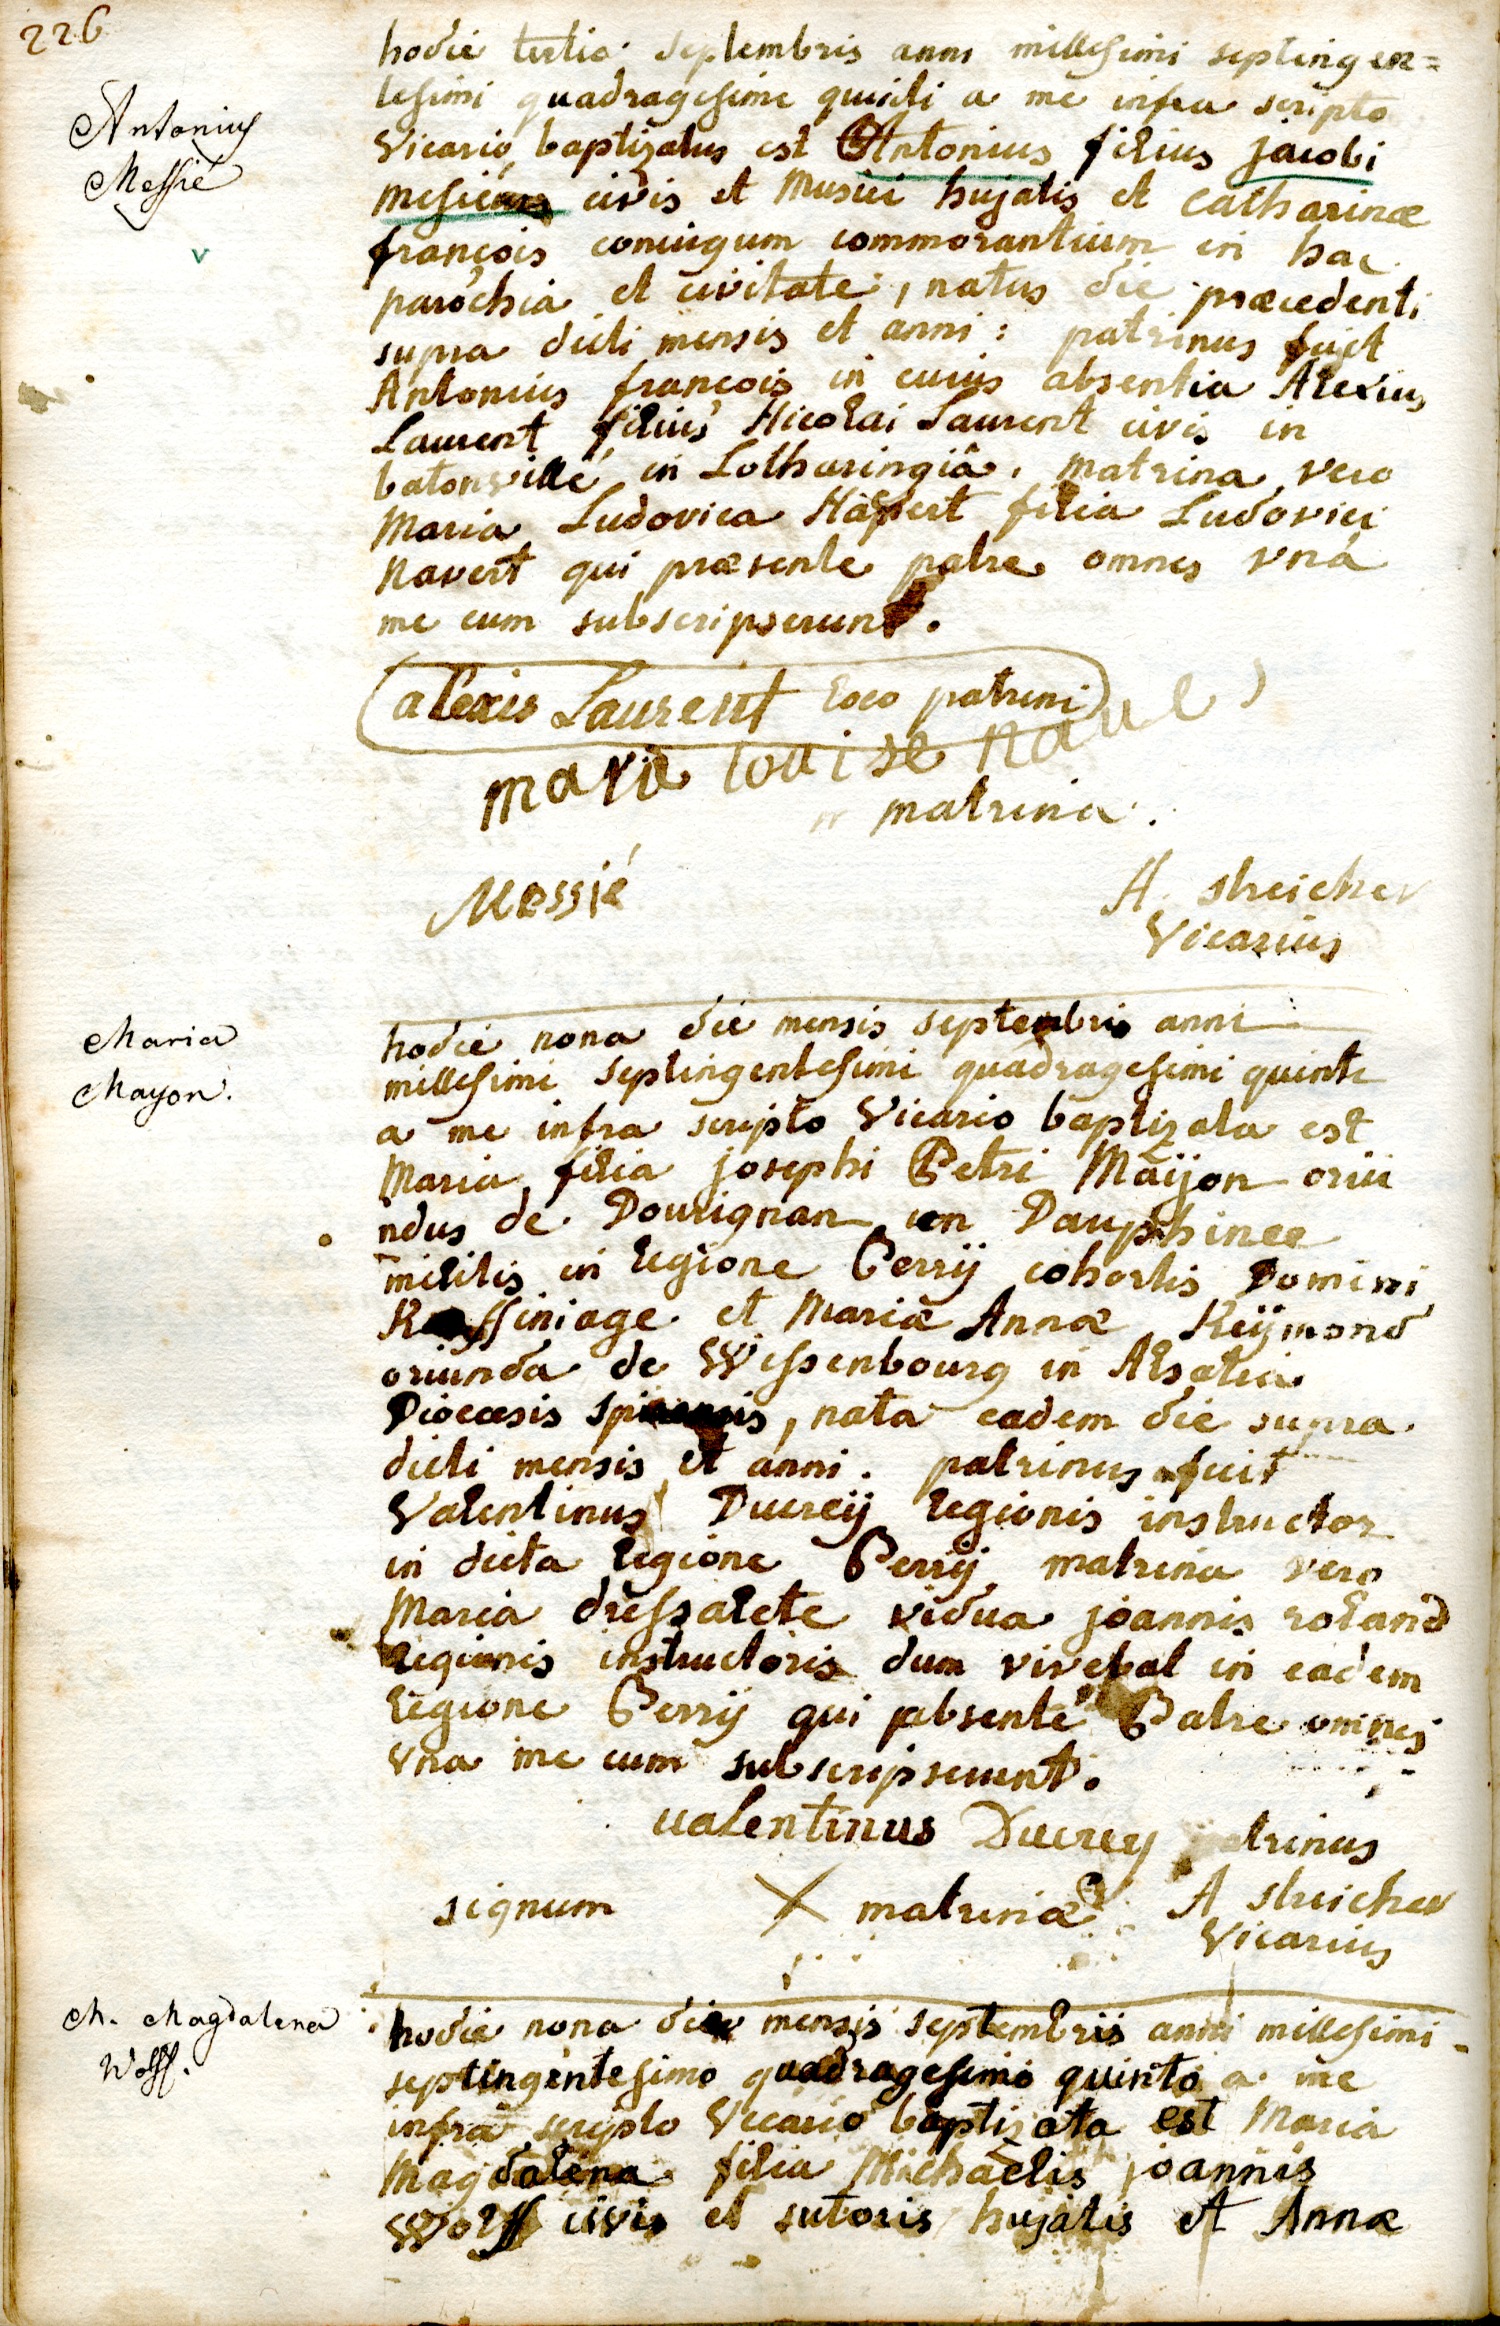 226
Antonius
Messié
hodie tertia septembris anni millesimi septingen=
tesimi quadragesimi quinti a me infra scripto
Vicario baptizatus est Antonius filius jacobi
mesié civis et Musici hujatis et Catharinæ
françois coniugum commorantium in hac
parochia et civitate, natus die præcedenti
supra dicti mensis et anni: patrinus fuit
Antonius françois in cuius absentia Alexius
Laurent filius Nicolai Laurent civis in
batonville in Lotharingiâ. matrina vero
Maria Ludovica filia Ludovici
Navert qui præsente patre omnes vnà
me cum subscripserunt.
alexis Laurent loco patrini
marie louise
matrina.
Messié
A. streicher
Vicarius
Maria
Mayon.
hodie nona die mensis septembris anni
millesimi septingentesimi quadragesimi quinti
a me infra scripto Vicario baptizata est
Maria filia josephi Petri Maijon oriu
ndus de Dourignan en Dauphinee
militis in legione Perrij cohortis Domini
et Mariæ Annæ Reijmond
oriunda de Wissenbourg in Alsatia
Dioecesis , nata eadem die supra
dicti mensis et anni. patrinus fuit
Valentinus Ducreij legionis instructor
in dicta legione Perrij matrina vero
Maria dressalete vidua joannis roland
legionis instructoris dum vivebat in eadem
legione Perrij qui absente Patre omnes
vna me cum subscripserunt.
valentinus Ducrey patrinus
signum X matrinæ A streicher
Vicarius
M. Magdalena
Wolff.
hodie nona die mensis septembris anni millesimi
septingentesimo quadragesimo quinto a me
infra scripto Vicario baptizata est Maria
Magdalena filia Michaelis joannis
Wolff civis et sutoris hujatis et Annæ